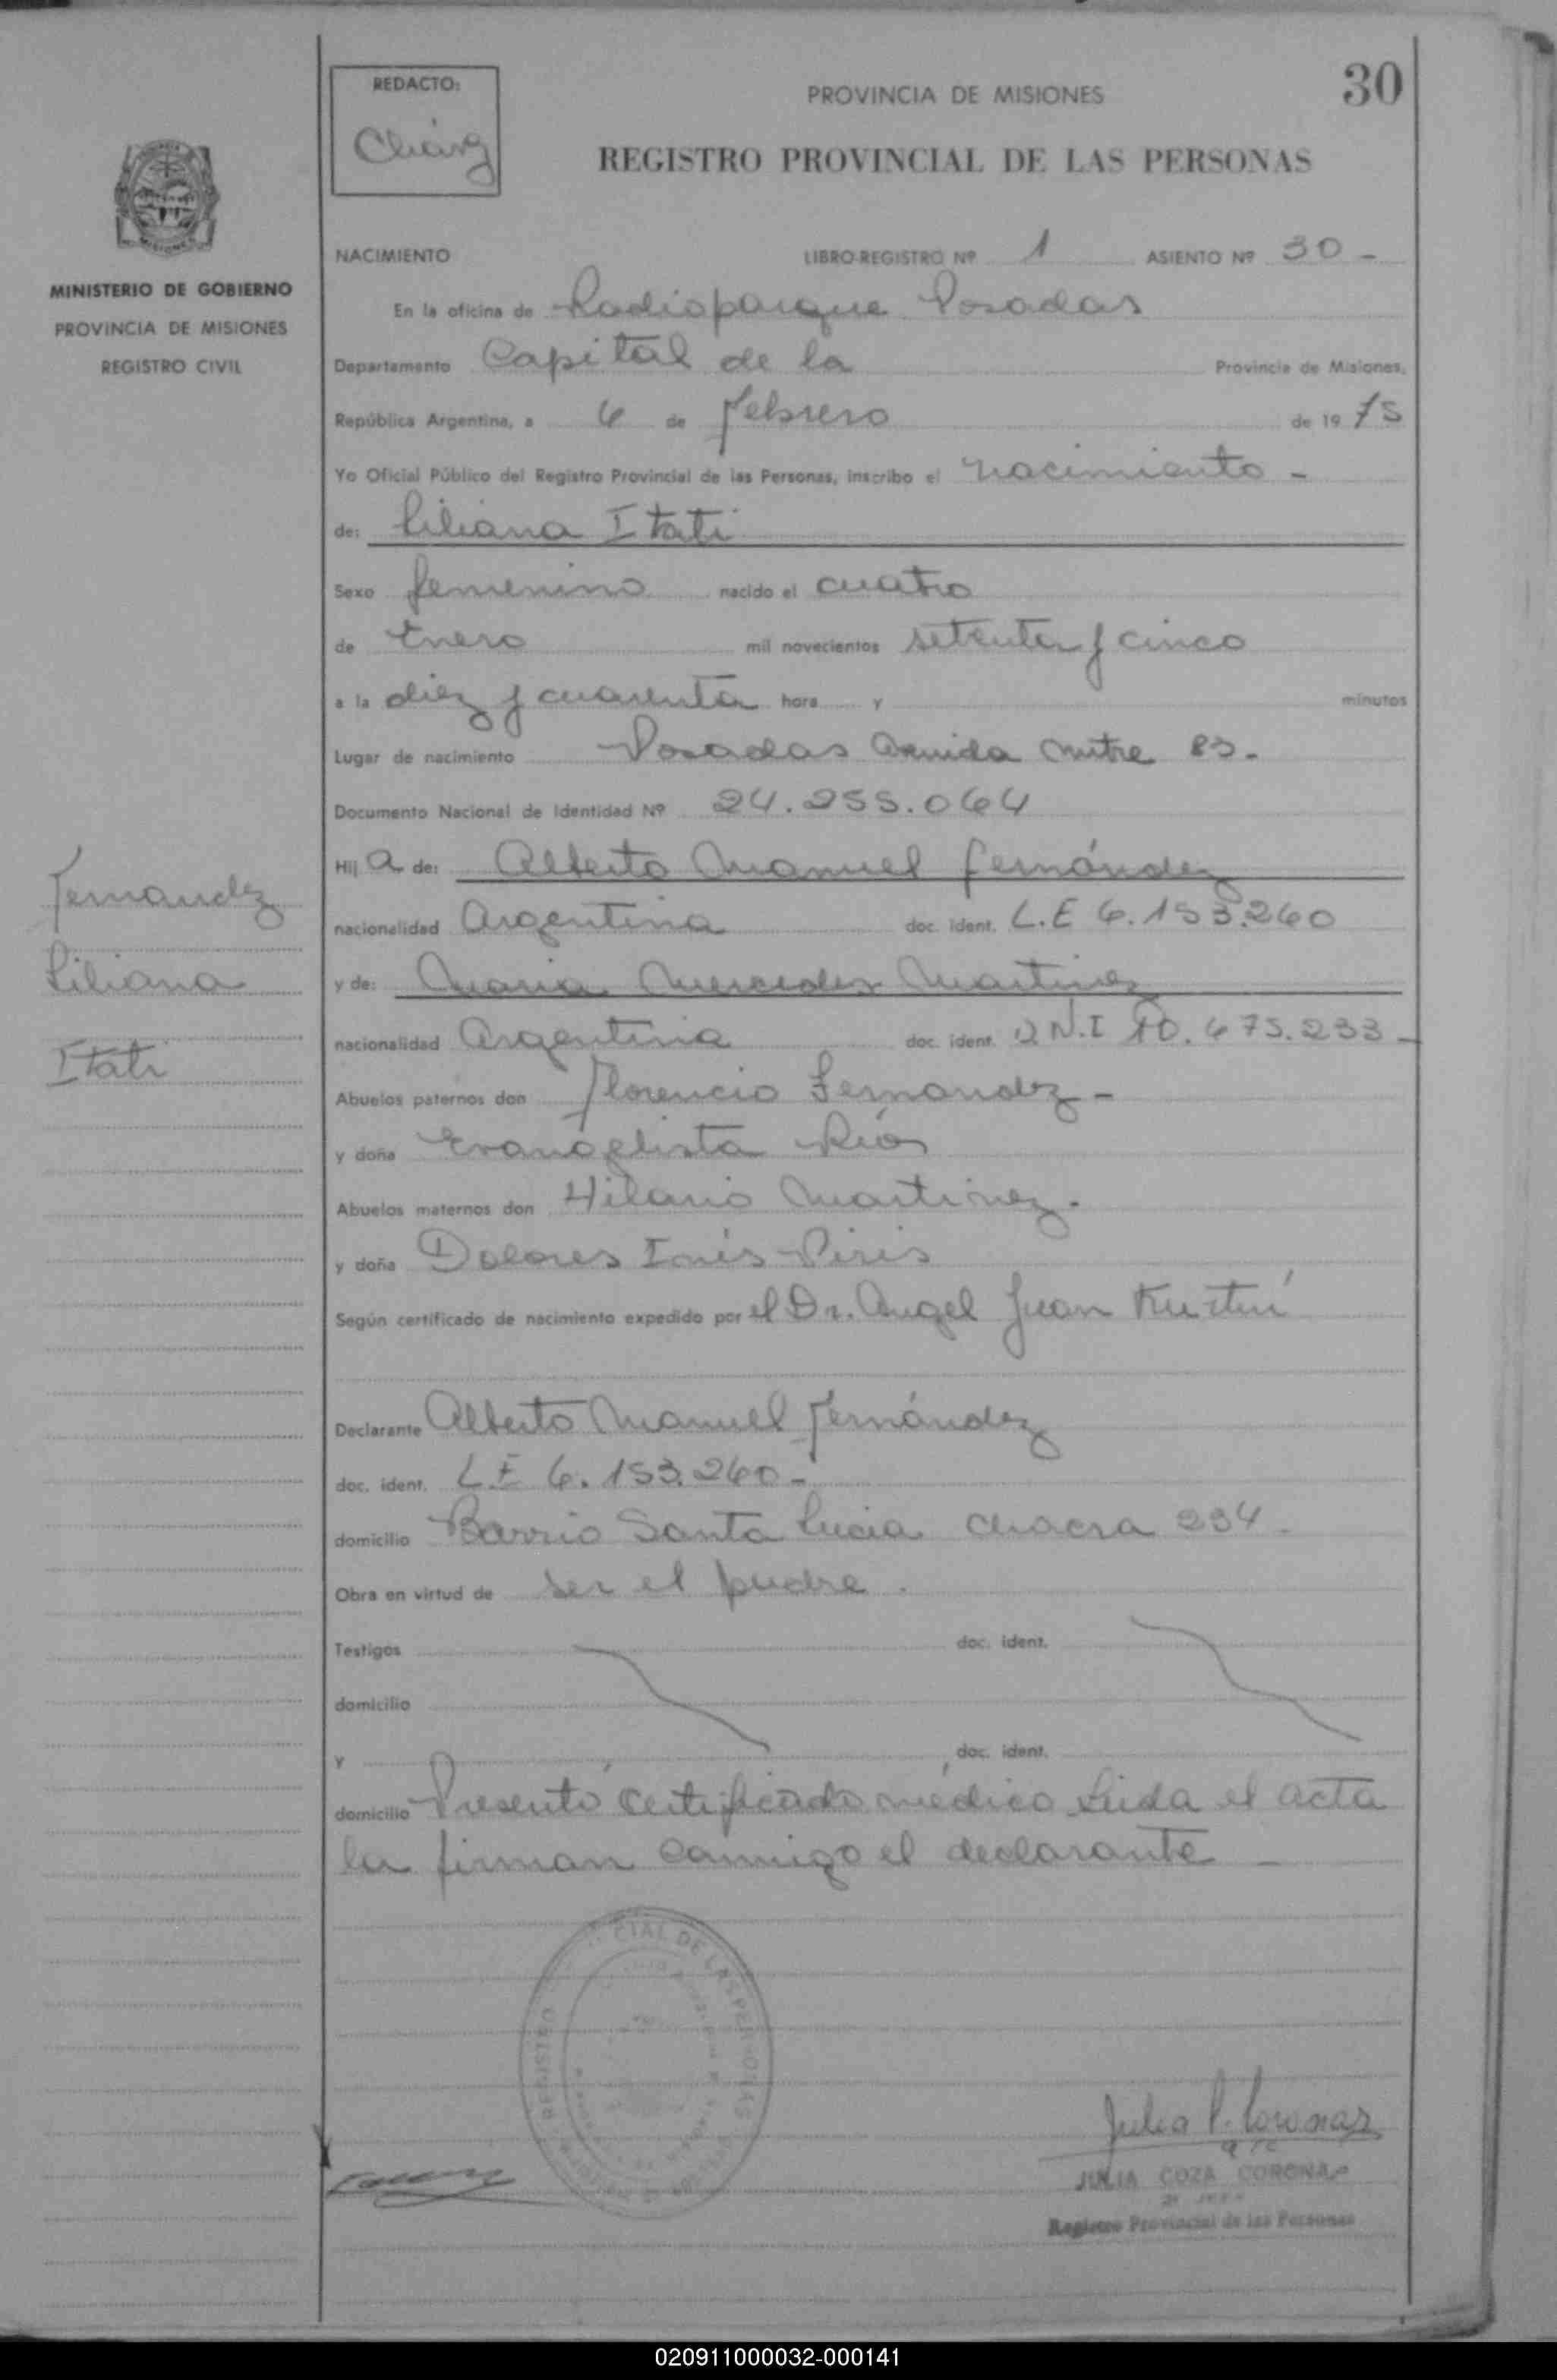 30
REDACTO:
PROVINCIA DE MISIONES
REGISTRO PROVINCIAL DE LAS PERSONAS
MINISTERIO DE GOBIERNO
PROVINCIA DE MISIONES
REGISTRO CIVIL
NACIMIENTO LIBRO-REGISTRO Nº 1 ASIENTO Nº 30 -
En la oficina de Radioparque Posadas
Departamento Capital de la Provincia de Misiones,
República Argentina, a 6 de Febrero de 19 75
Yo Oficial Público del Registro Provincial de las Personas, inscribo el nacimiento -
de: Liliana Itati
Sexo femenino nacido el cuatro
de Enero mil novecientos setenta y cinco
a la diez y cuarenta hora y minutos
Lugar de nacimiento Posadas Avenida Mitre 83.
Documento Nacional de Identidad Nº 24.255.064
Hij a de: Alberto Manuel Fernández
nacionalidad Argentina doc. ident. L.E 6.153.260
y de: Maria Mercedes Martinez
nacionalidad Argentina doc. ident. D.N.I 10.675.233 -
Abuelos paternos don Florencio Fernandez -
y doña Evangelista Ríos
Abuelos maternos don Hilario Martinez.
y doña Dolores Inés Piris
Según certificado de nacimiento expedido por el Dr. Angel Juan
Declarante Alberto Manuel Fernández
doc. ident. L E 6.153.260 -
domicilio Barrio Santa Lucia chacra 234.
Obra en virtud de ser el padre.
Testigos doc. ident.
domicilio
y , doc. ident.
domicilio Presentó certificado médico Leida el acta
la firman conmigo el declarante -
Fernandez
Liliana
Itati
CIAL DE LAS PERSONAS
REGISTRO
Julia P. Coronaz
JULIA COZA CORONAZ
Registro Provincial de las Personas
020911000032-000141